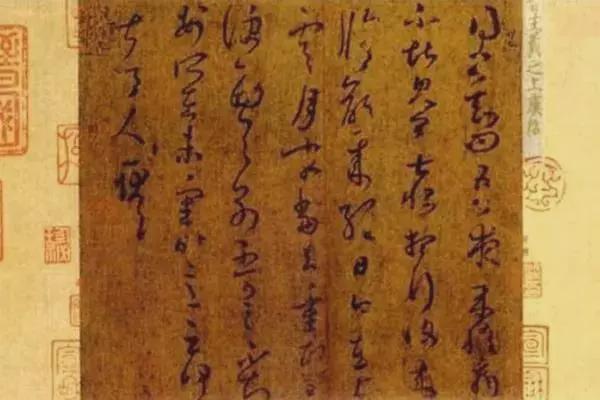 晉王羲之上虞帖
得書知問吾夜來腹痛
不堪見卿甚恨想行復來
修齡來經日今在上
虞月末當去重熙旦
便西與別不可言不知
安所在未審時意云何
甚令人耿耿